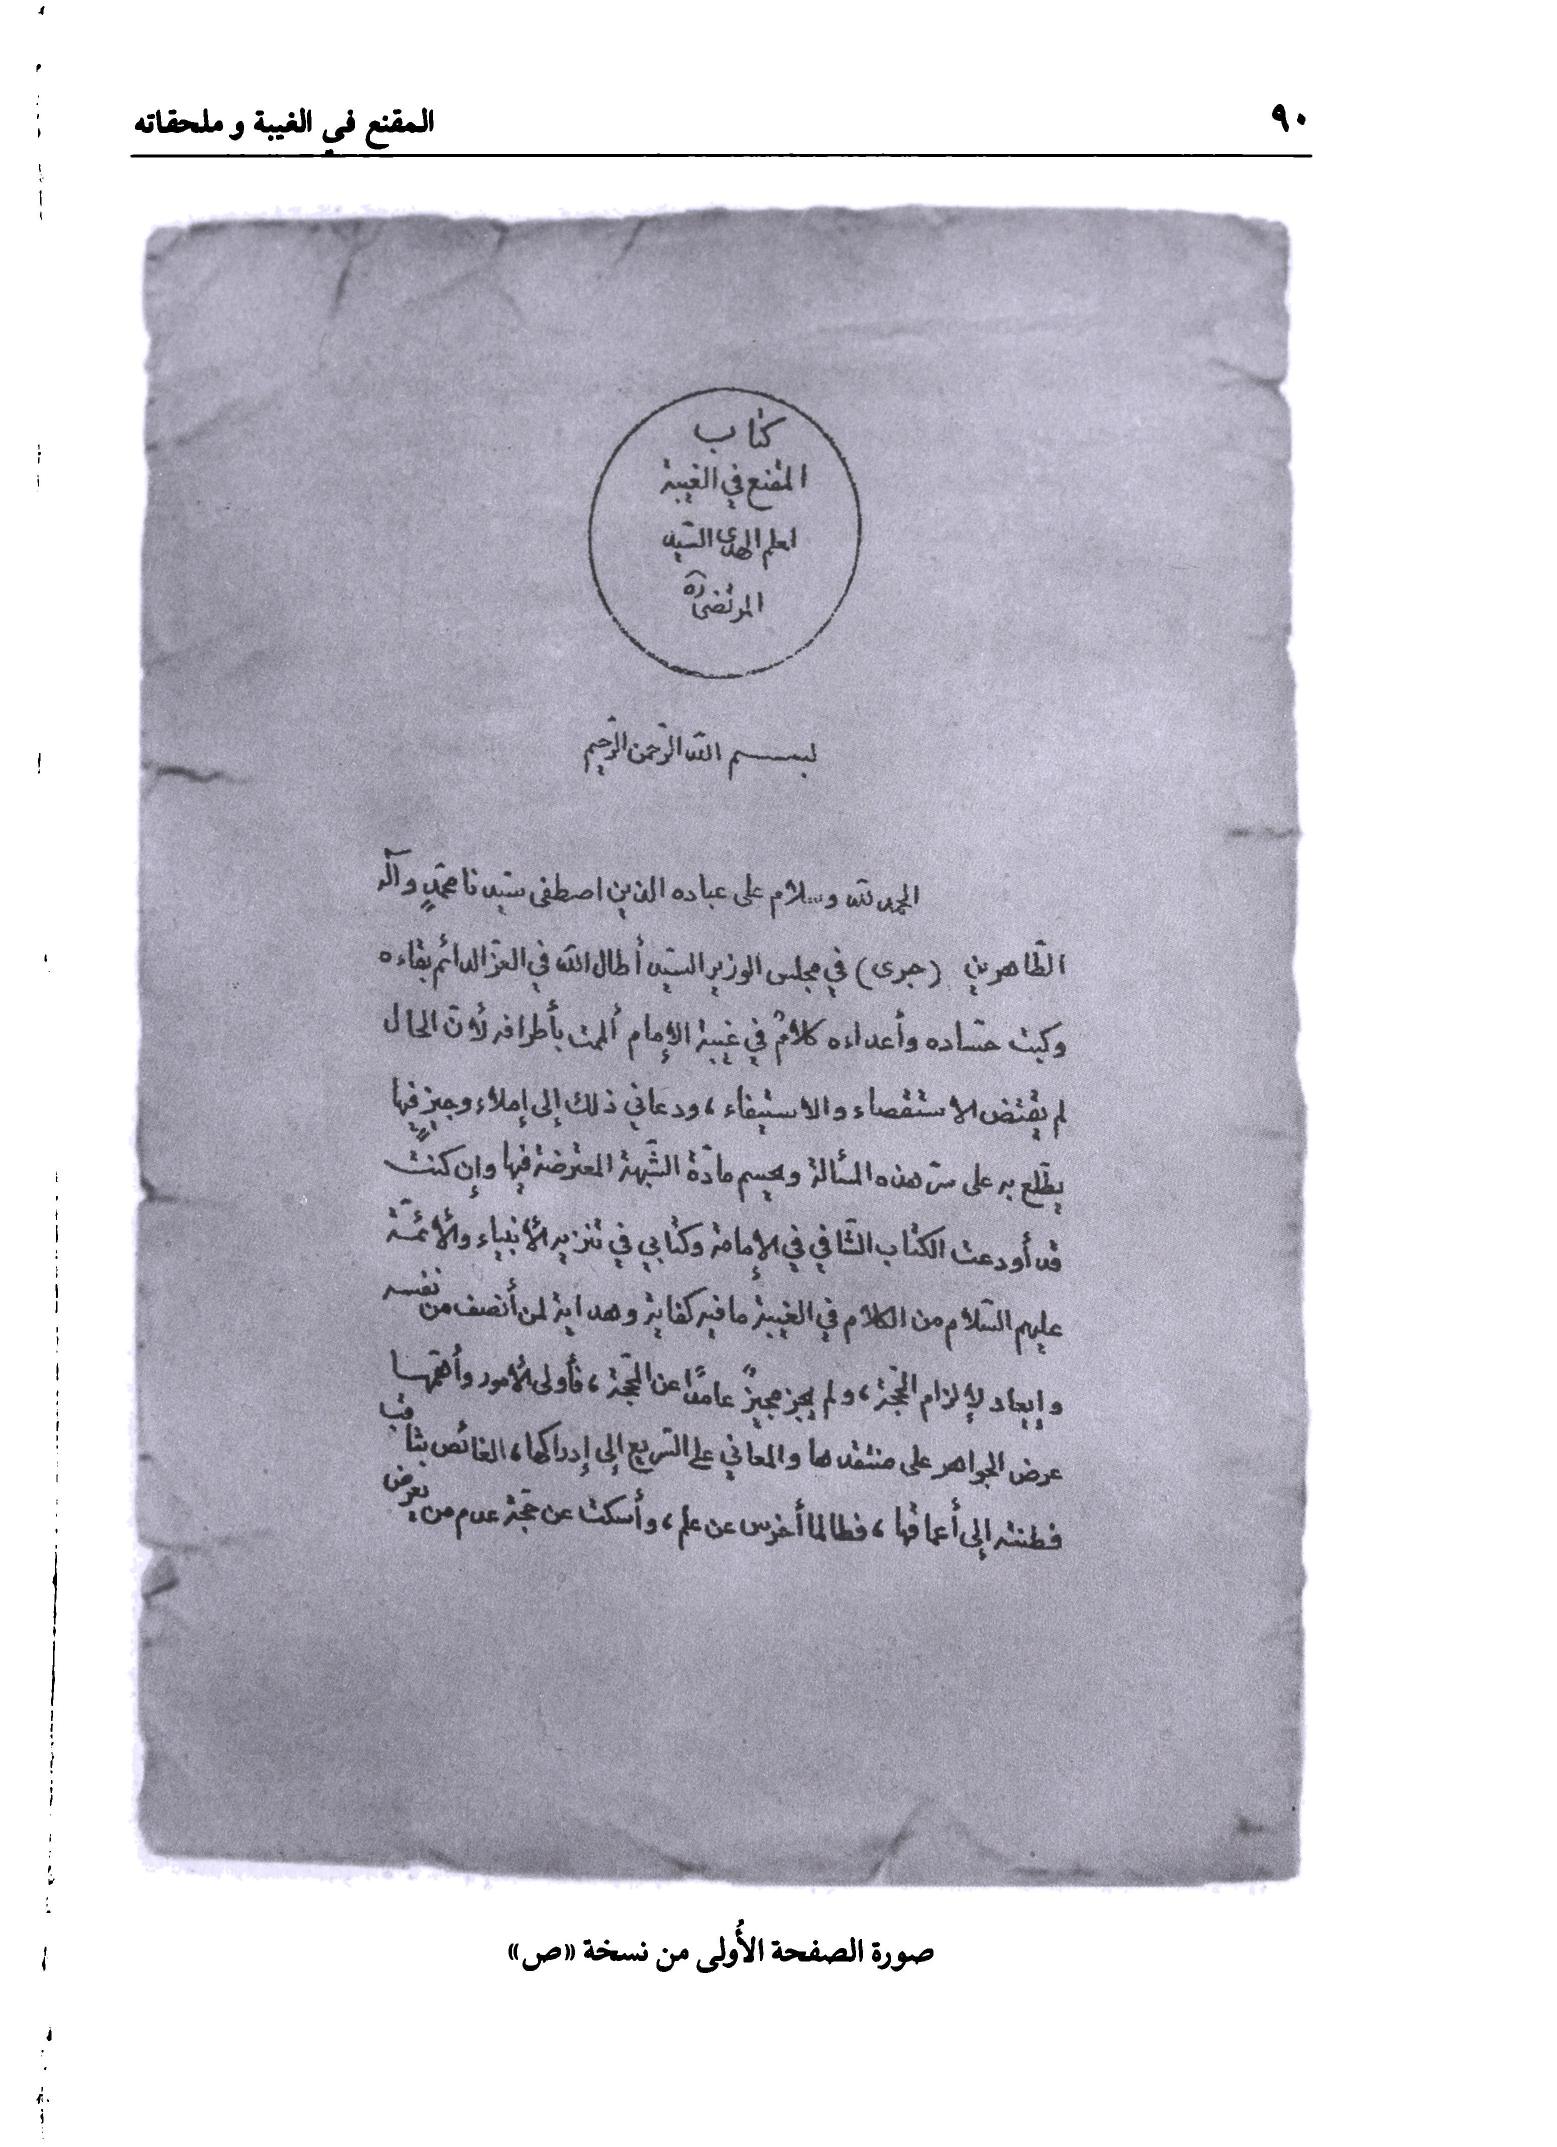 ٩٠
المقنع في الغيبة و ملحقاته
كتاب
المقنع في الغيبة
لعلم الهدى السّيد
المرتضى ره
بسم الله الرّحمن الرّحيم
الحمد لله وسلام على عباده الذين اصطفى سيّدنا محمّدٍ وآله
الطّاهرين (جرى) في مجلس الوزير السيّد أطال الله في العزّ الدائم بقاءه
وكبت حسّاده وأعداءه كلامٌ في غيبة الإمام ألممت بأطرافه لأنّ الحال
لم يقتض الاستقصاء والاستيفاء، ودعاني ذلك إلى إملاء وجيزٍ فيها
يطّلع به على سرّ هذه المسألة ويحسم مادّة الشّبهة المعترضة فيها وإن كنتُ
قد أودعت الكتاب الشّافي في الإمامة وكتابي في تنزيه الأنبياء والأئمّة
عليهم السّلام من الكلام في الغيبة ما فيه كفاية وهداية لمن أنصف من نفسه
وإيعاد لإلزام الحجّة، ولم يجز مجيزٌ عامداً عن الحجّة، فأولى الأمور وأهمّها
عرض الجواهر على منتقدها والمعاني على السّريع إلى إدراكها، الغائص بثاقب
فطنته إلى أعماقها، فطالما أخرس عن علم، وأسكت عن حجّة عدم من يعرض
صورة الصفحة الأُولى من نسخة «ص»